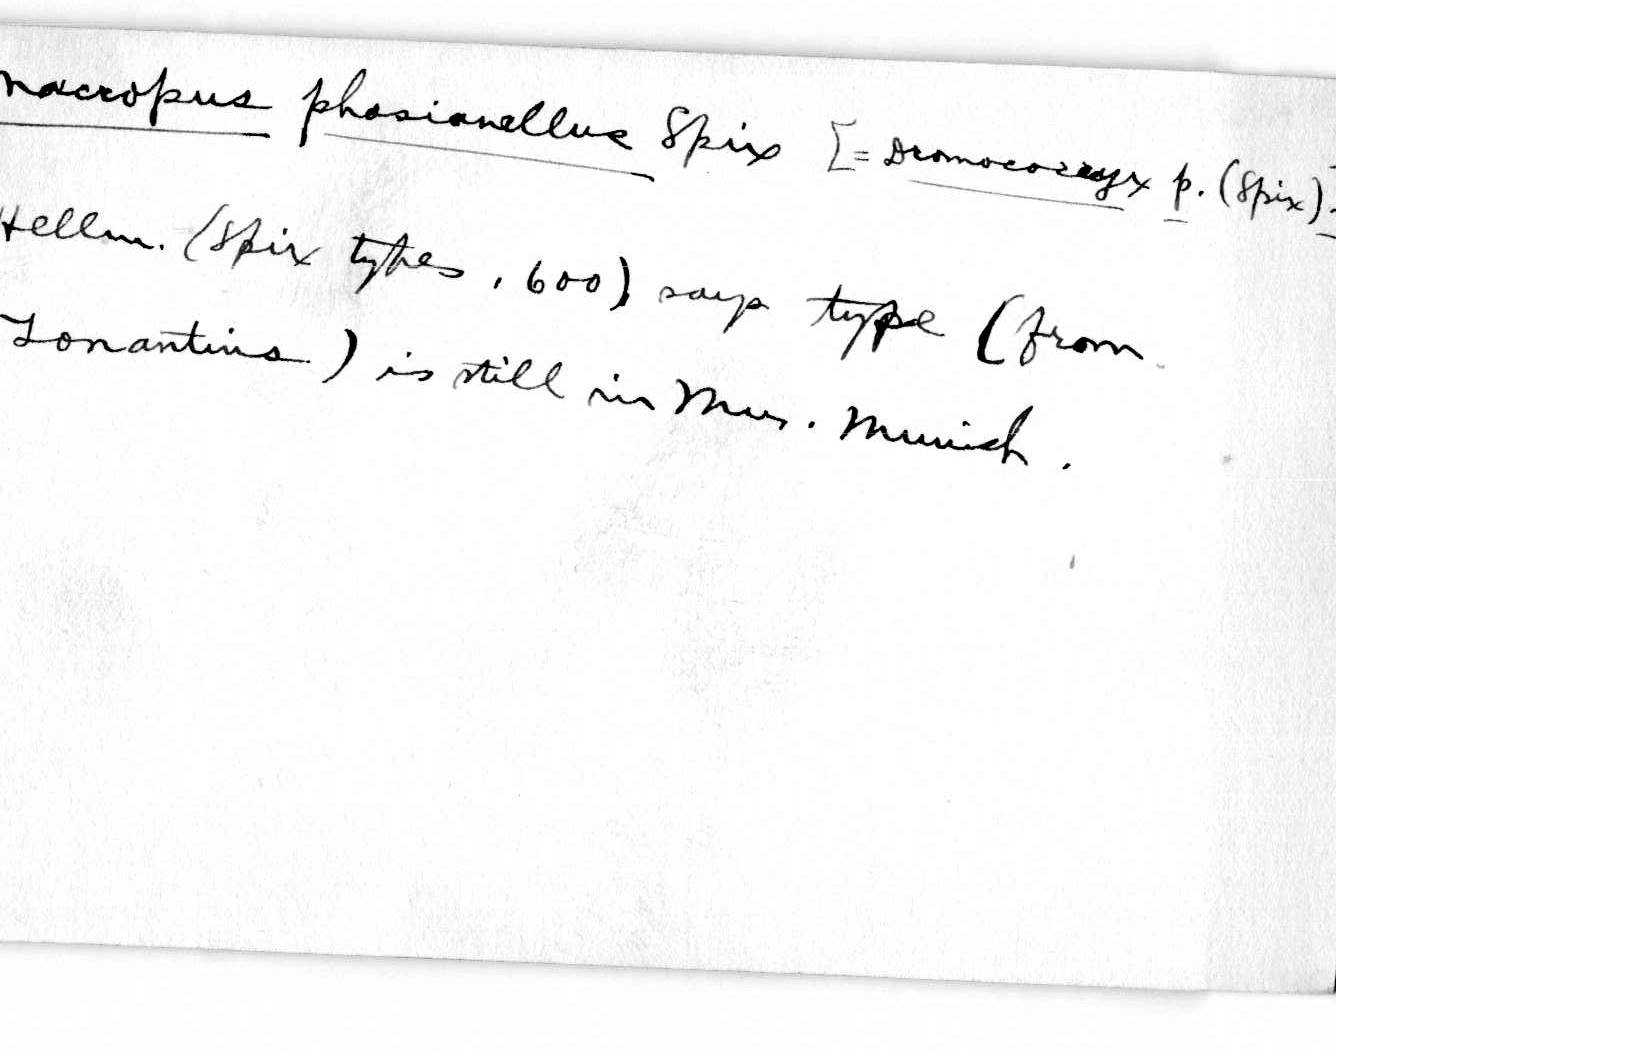 Macropus phasianellus Spix [= Dromococcyx p. (Spix)]
Hellm. (Spix types, 600) says type (from
Tonantins) is still in Mus. Munich.